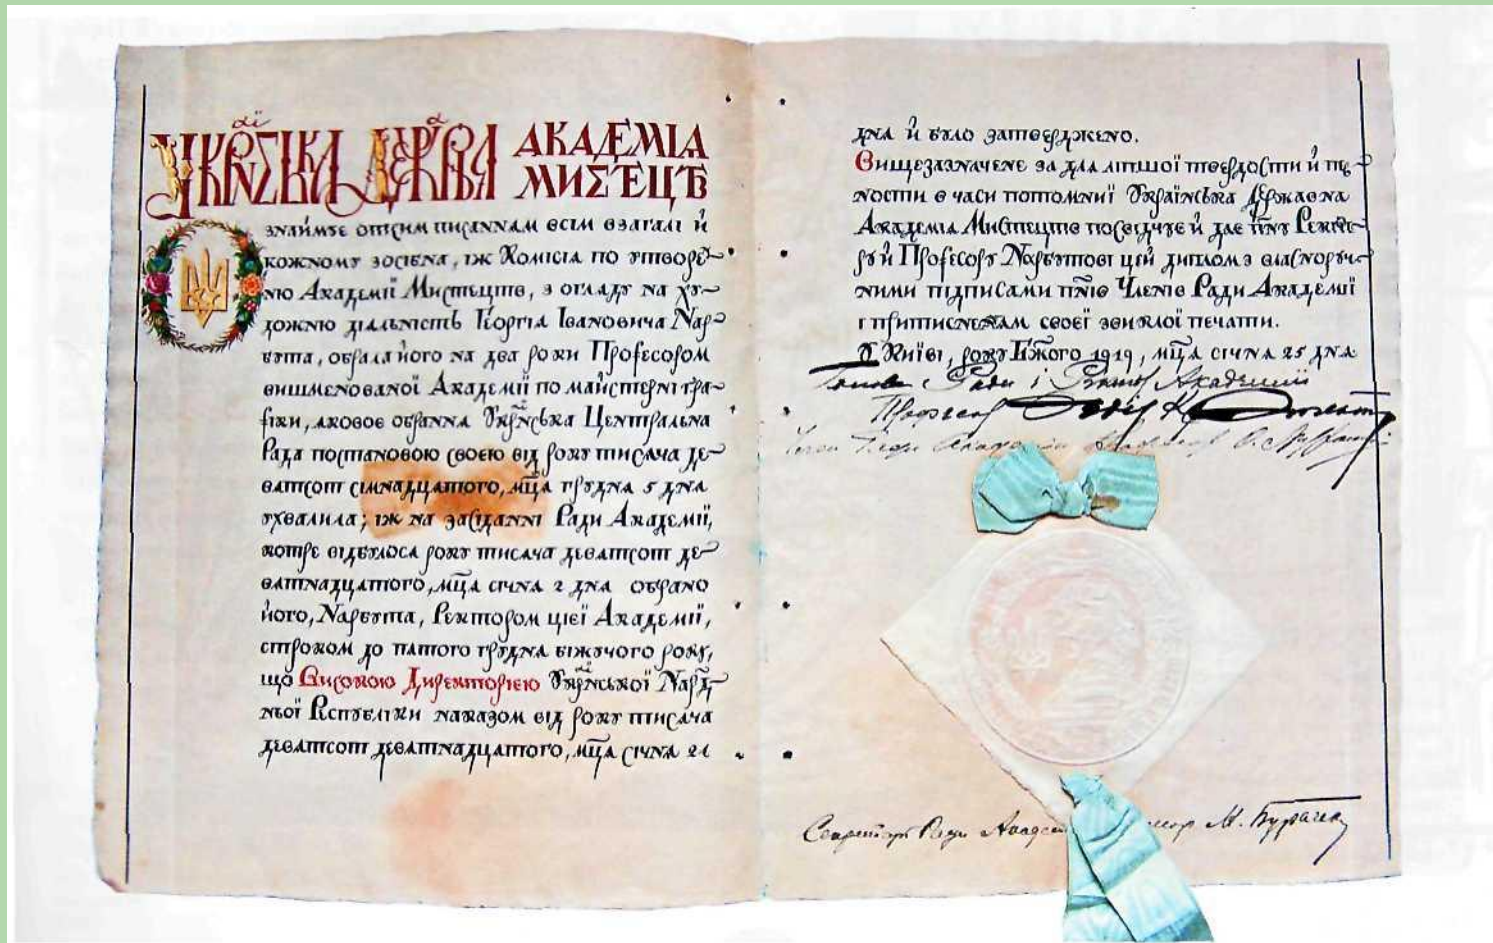 УКРАЇНСЬКА ДЕРЖАВНА АКАДЕМІЯ
МИСТЕЦТВ
Ознаймує отсим писаннам всім взагалі й
кожному зосібна, іж Комісія по утворе-
ню Академії Мистецтв, з огляду на ху-
дожню діяльність Георгія Івановича Нар-
бута, обрала його на два роки Професором
вишменованої Академії по майстерні гра-
фіки, аковое обрання Українська Центральна
Рада постановою своєю від року тисяча де-
ватсот сімнадцатого, мца грудня 5 дня
ухвалила; іж на засіданні Ради Академії,
котре відбулося року тисяча деватсот де-
ватнадцатого, мця січня 2 дня обрано
його, Нарбута, Ректором цієї Академії,
строком до патого грудня біжучого року,
що Високою Директорією Української Народ
ньої Републіки наказом від року тисяча
деватсот деватнадцатого, мця січня 21
дня й було затверджено.
Вищезазначене за для ліпшої твердости й пе-
ности в часи потомниї Українська Державна
Академія Мистецтв посвідчує й дає пну Ректо-
ру й Професору Нарбутові цей диплом з власноруч-
ними підписами пнів Членів Ради Академії
і притисненям своєї звиклої печати.
У Київі, року Бжого 1919, мця січня 25 дня
Голова Ради і Ректор Академії
Професор
Член Ради Академії Професор О.
Секретар Ради Академ М. Бурачек